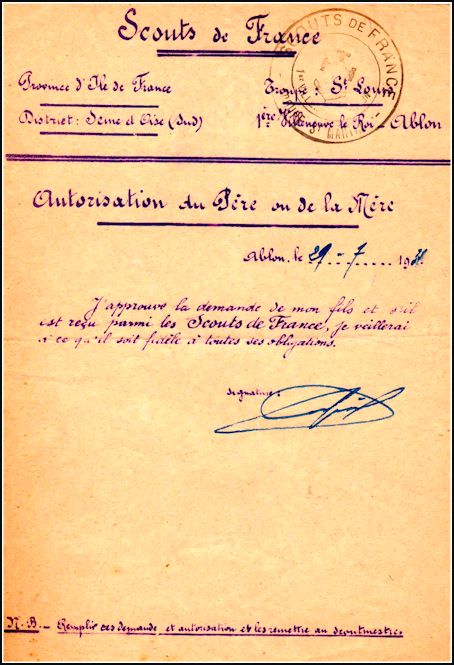 Scouts de France
SCOUTS DE FRANCE
Province d'Ile de France
Troupe : St Louis
District : Seine et Oise (Sud)
1ère Villeneuve le Roi - Ablon
Autorisation du Père ou de la Mère
Ablon, le 29 - 7 193
J'approuve la demande de mon fils et s'il
est reçu parmi les Scouts de France, je veillerai
à ce qu'il soit fidèle à toutes ses obligations.
signature:
N.B. - Remplir ces demande et autorisation et les remettre au scoutmestre